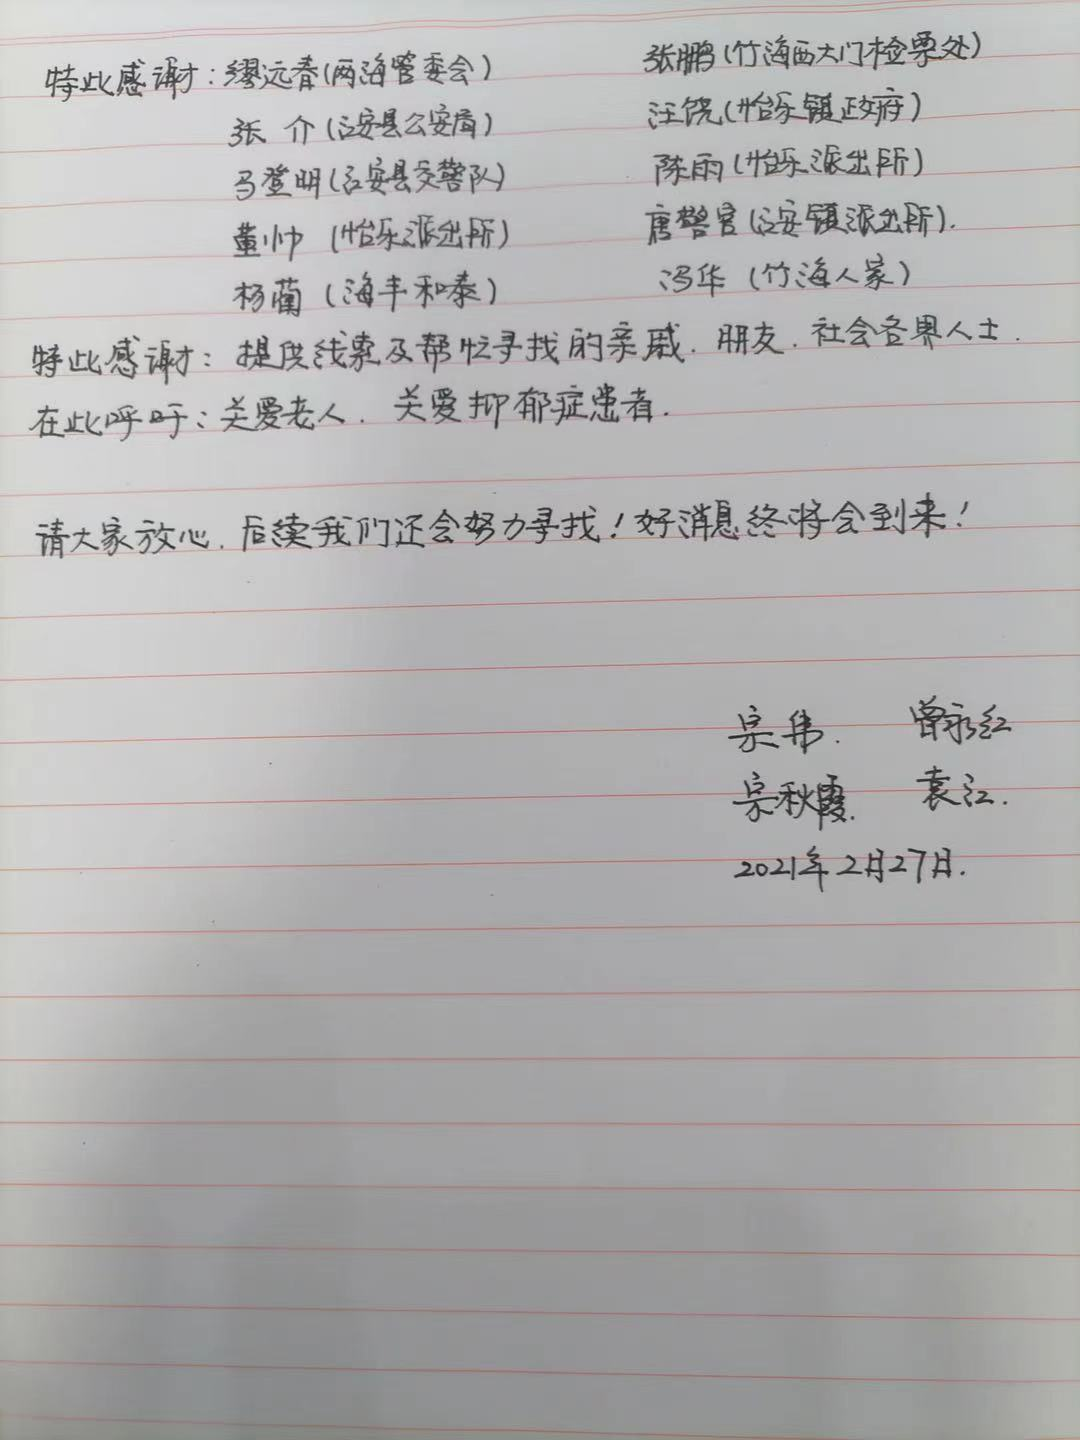 特此感谢：缪远春(两海管委会) 张鹏(竹海西大门检票处)
张介(江安县公安局) 汪饶(怡乐镇政府)
马登明(江安县交警队) 陈雨(怡乐派出所)
董帅(怡乐派出所) 唐警官(江安镇派出所).
杨蔺(海丰和泰) 冯华(竹海人家)
特此感谢：提供线索及帮忙寻找的亲戚.朋友.社会各界人士.
在此呼吁：关爱老人.关爱抑郁症患者.
请大家放心.后续我们还会努力寻找!好消息终将会到来!
宗伟. 曾永红
宗秋霞. 袁江.
2021年2月27日.